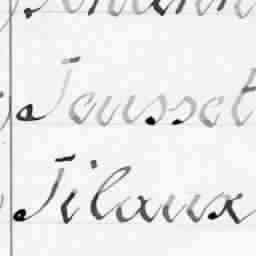 Tousset
Tilaux